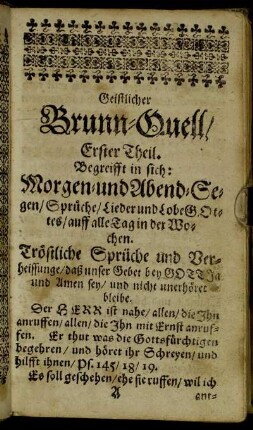 Geistlicher
Brunn-Quell/
Erster Theil.
Begreifft in sich:
Morgen-und Abend-Se-
gen/ Sprüche/ Lieder und Lobe GOt-
tes/ auff alle Tag in der Wo-
chen.
Tröstliche Sprüche und Ver-
heissunge/ daß unser Gebet bey GOTT Ja
und Amen sey/ und nicht unerhöret
bleibe.
Der HERR ist nahe/ allen/ die Jhn
anruffen/ allen/ die Jhn mit Ernst anruf-
fen. Er thut was die Gottsfürchtigen
begehren/ und höret ihr Schreyen/ und
hilfft ihnen/ Ps. 145/ 18/ 19.
Es soll geschehen/ ehe sie ruffen/ wil ich
A ant-